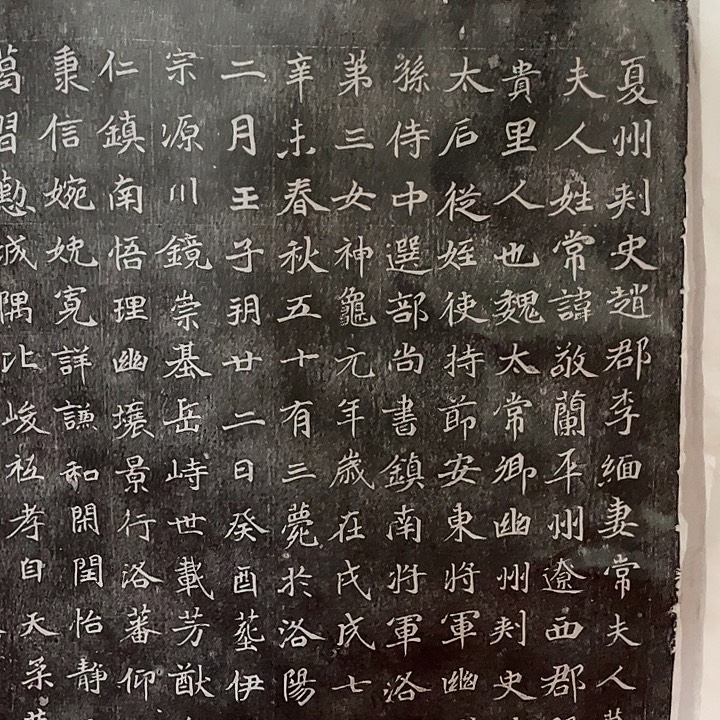 夏州刾史趙郡李緬妻常夫人
夫人姓常諱敬蘭平州遼西郡
貴里人也魏太常卿幽州刾史
太后從姪使持節安東將軍幽
孫侍中選部尚書鎮南將軍洛
第三女神龜元年歲在戊戌七
辛未春秋五十有三薨於洛陽
二月壬子朔廿二日癸酉塟伊
宗源川鏡崇基岳峙世載芳猷
仁鎮南悟理幽壤景行洛蕃仰
秉信婉娩寛詳謙和閑閨怡静
習懃城隅比峻祗孝自天柔